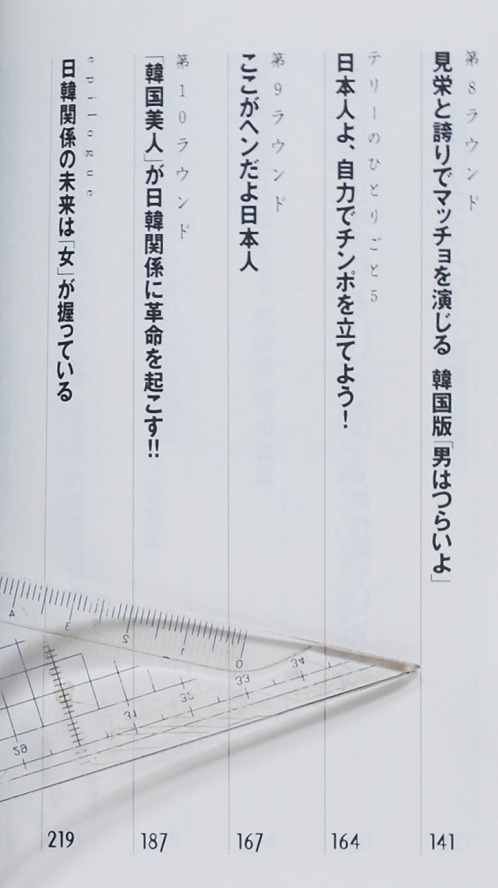 第8ラウンド
見栄と誇りでマッチョを演じる 韓国版「男はつらいよ」
141
テリーのひとりごと5
日本人よ、自力でチンポを立てよう!
164
第9ラウンド
ここがヘンだよ日本人
167
第10ラウンド
「韓国美人」が日韓関係に革命を起こす!!
187
epilogue
日韓関係の未来は「女」が握っている
219
4
3
2
1
0
34
33
32
31
29